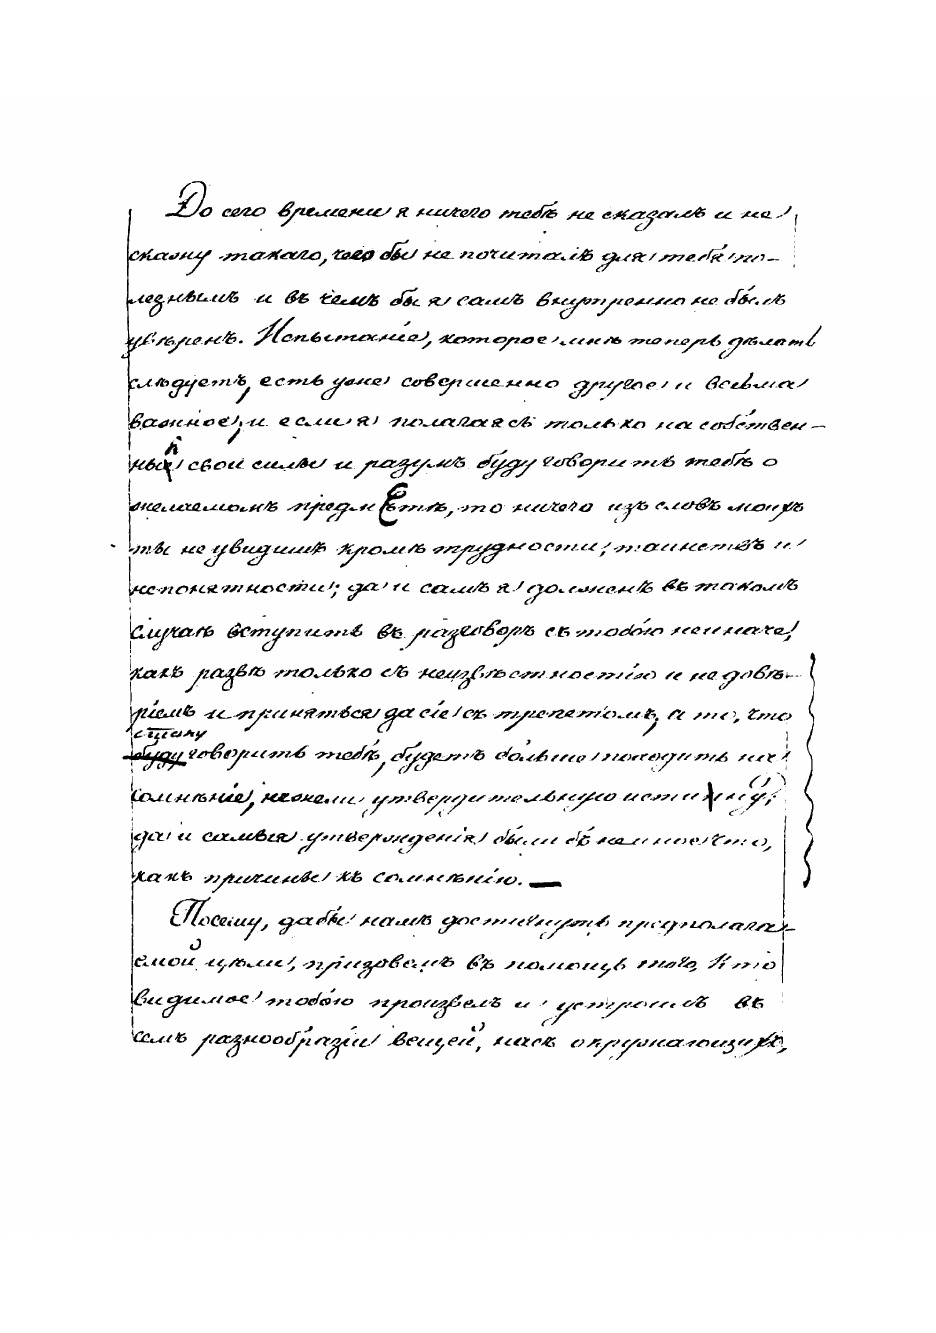 До сего времени я ничего тебѣ не сказалъ и не
скажу такаго, чего бы не почиталъ для тебя по-
лезнымъ и въ чемъ бы я самъ внутренно не былъ
увѣренъ. Испытаніе, которое мнѣ теперь дѣлать
слѣдуетъ, есть уже совершенно другое и весьма
важное, и если я полагаясь только на собствен-
ныя свои силы и разумъ буду говорить тебѣ о
желаемомъ предмѣтѣ, то ничего изъ словъ моихъ
ты не увидишь кромѣ трудности, таинствъ и
непонятности; да и самъ я долженъ въ такомъ
случаѣ вступить въ разговоръ съ тобою не иначе,
какъ развѣ только съ неизвѣстностію и не довѣ-
ріемъ и приняться за сіе съ трепетомъ, а то, что
стану
буду говорить тебѣ, будетъ больше походить на
сомнѣніе, нежели утвердительную истинну;
да и самыя утвержденія были бъ не иное что,
какъ причины къ сомнѣнію. —
Посему, дабы намъ достигнуть предполага-
емой цѣли, призовемъ въ помощь того, кто
видимое тобою произвелъ и устроилъ въ
семъ разнообразіи вещей, насъ окружающихъ,